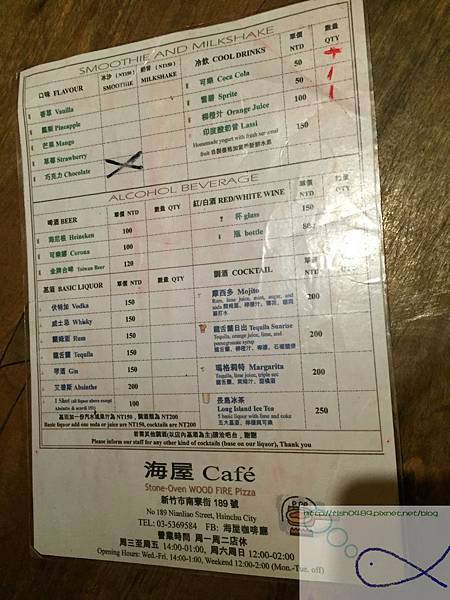 SMOOTHIE AND MILKSHAKE
口味 FLAVOUR
冰沙 (NT150) SMOOTHIE
奶昔 (NT150) MILKSHAKE
香草 Vanilla
鳳梨 Pineapple
芒果 Mango
草莓 Strawberry
巧克力 Chocolate
冷飲 COOL DRINKS
單價 NTD
數量 QTY
可樂 Coca Cola 50
雪碧 Sprite 50
柳橙汁 Orange Juice 100
印度酸奶昔 Lassi 150
Homemade yogurt with fresh seasonal
fruit
ALCOHOL BEVERAGE
啤酒 BEER 單價 NTD 數量 QTY
海尼根 Heineken 100
可樂娜 Corona 100
金牌台啤 Taiwan Beer 120
紅/白酒 RED/WHITE WINE
單價 NTD
杯 glass 150
瓶 bottle
基酒 BASIC LIQUOR 單價 NTD 數量 QTY
伏特加 Vodka 150
威士忌 Whisky 150
蘭姆酒 Rum 150
龍舌蘭 Tequila 150
琴酒 Gin 150
艾碧斯 Absinthe 200
1 Shot (all liquor above except
Absinthe & scotch 100)
基酒加一份汽水或果汁為 NT150，調酒類為 NT200
Basic liquor add one soda or juice are NT150, cocktails are NT200
調酒 COCKTAIL
單價 NTD
摩西多 Mojito 200
Rum, lime juice, mint, sugar, and
soda
龍舌蘭日出 Tequila Sunrise 200
Tequila, orange juice, lime, and
pomegranate syrup
瑪格莉特 Margarita 200
Tequila, lime juice, triple sec
長島冰茶 250
Long Island Ice Tea
5 basic liquor with lime and coke
五大基酒、檸檬與可樂
若需其他調酒(以店內基酒為主)請洽吧台，謝謝
Please inform our staff for any other kind of cocktails (base on our liquor), Thank you
海屋 Café
Stone-Oven WOOD FIRE Pizza
新竹市南寮街 189 號
No 189 Nianliao Street, Hsinchu City
TEL: 03-5369584 FB: 海屋咖啡廳
營業時間 周一周二店休
周三至周五 14:00-01:00, 周六周日 12:00-02:00
Opening Hours: Wed.-Fri. 14:00-1:00, Weekend 12:00-2:00 (Mon.-Tue. off)
http://fish0484.pixnet.net/blog